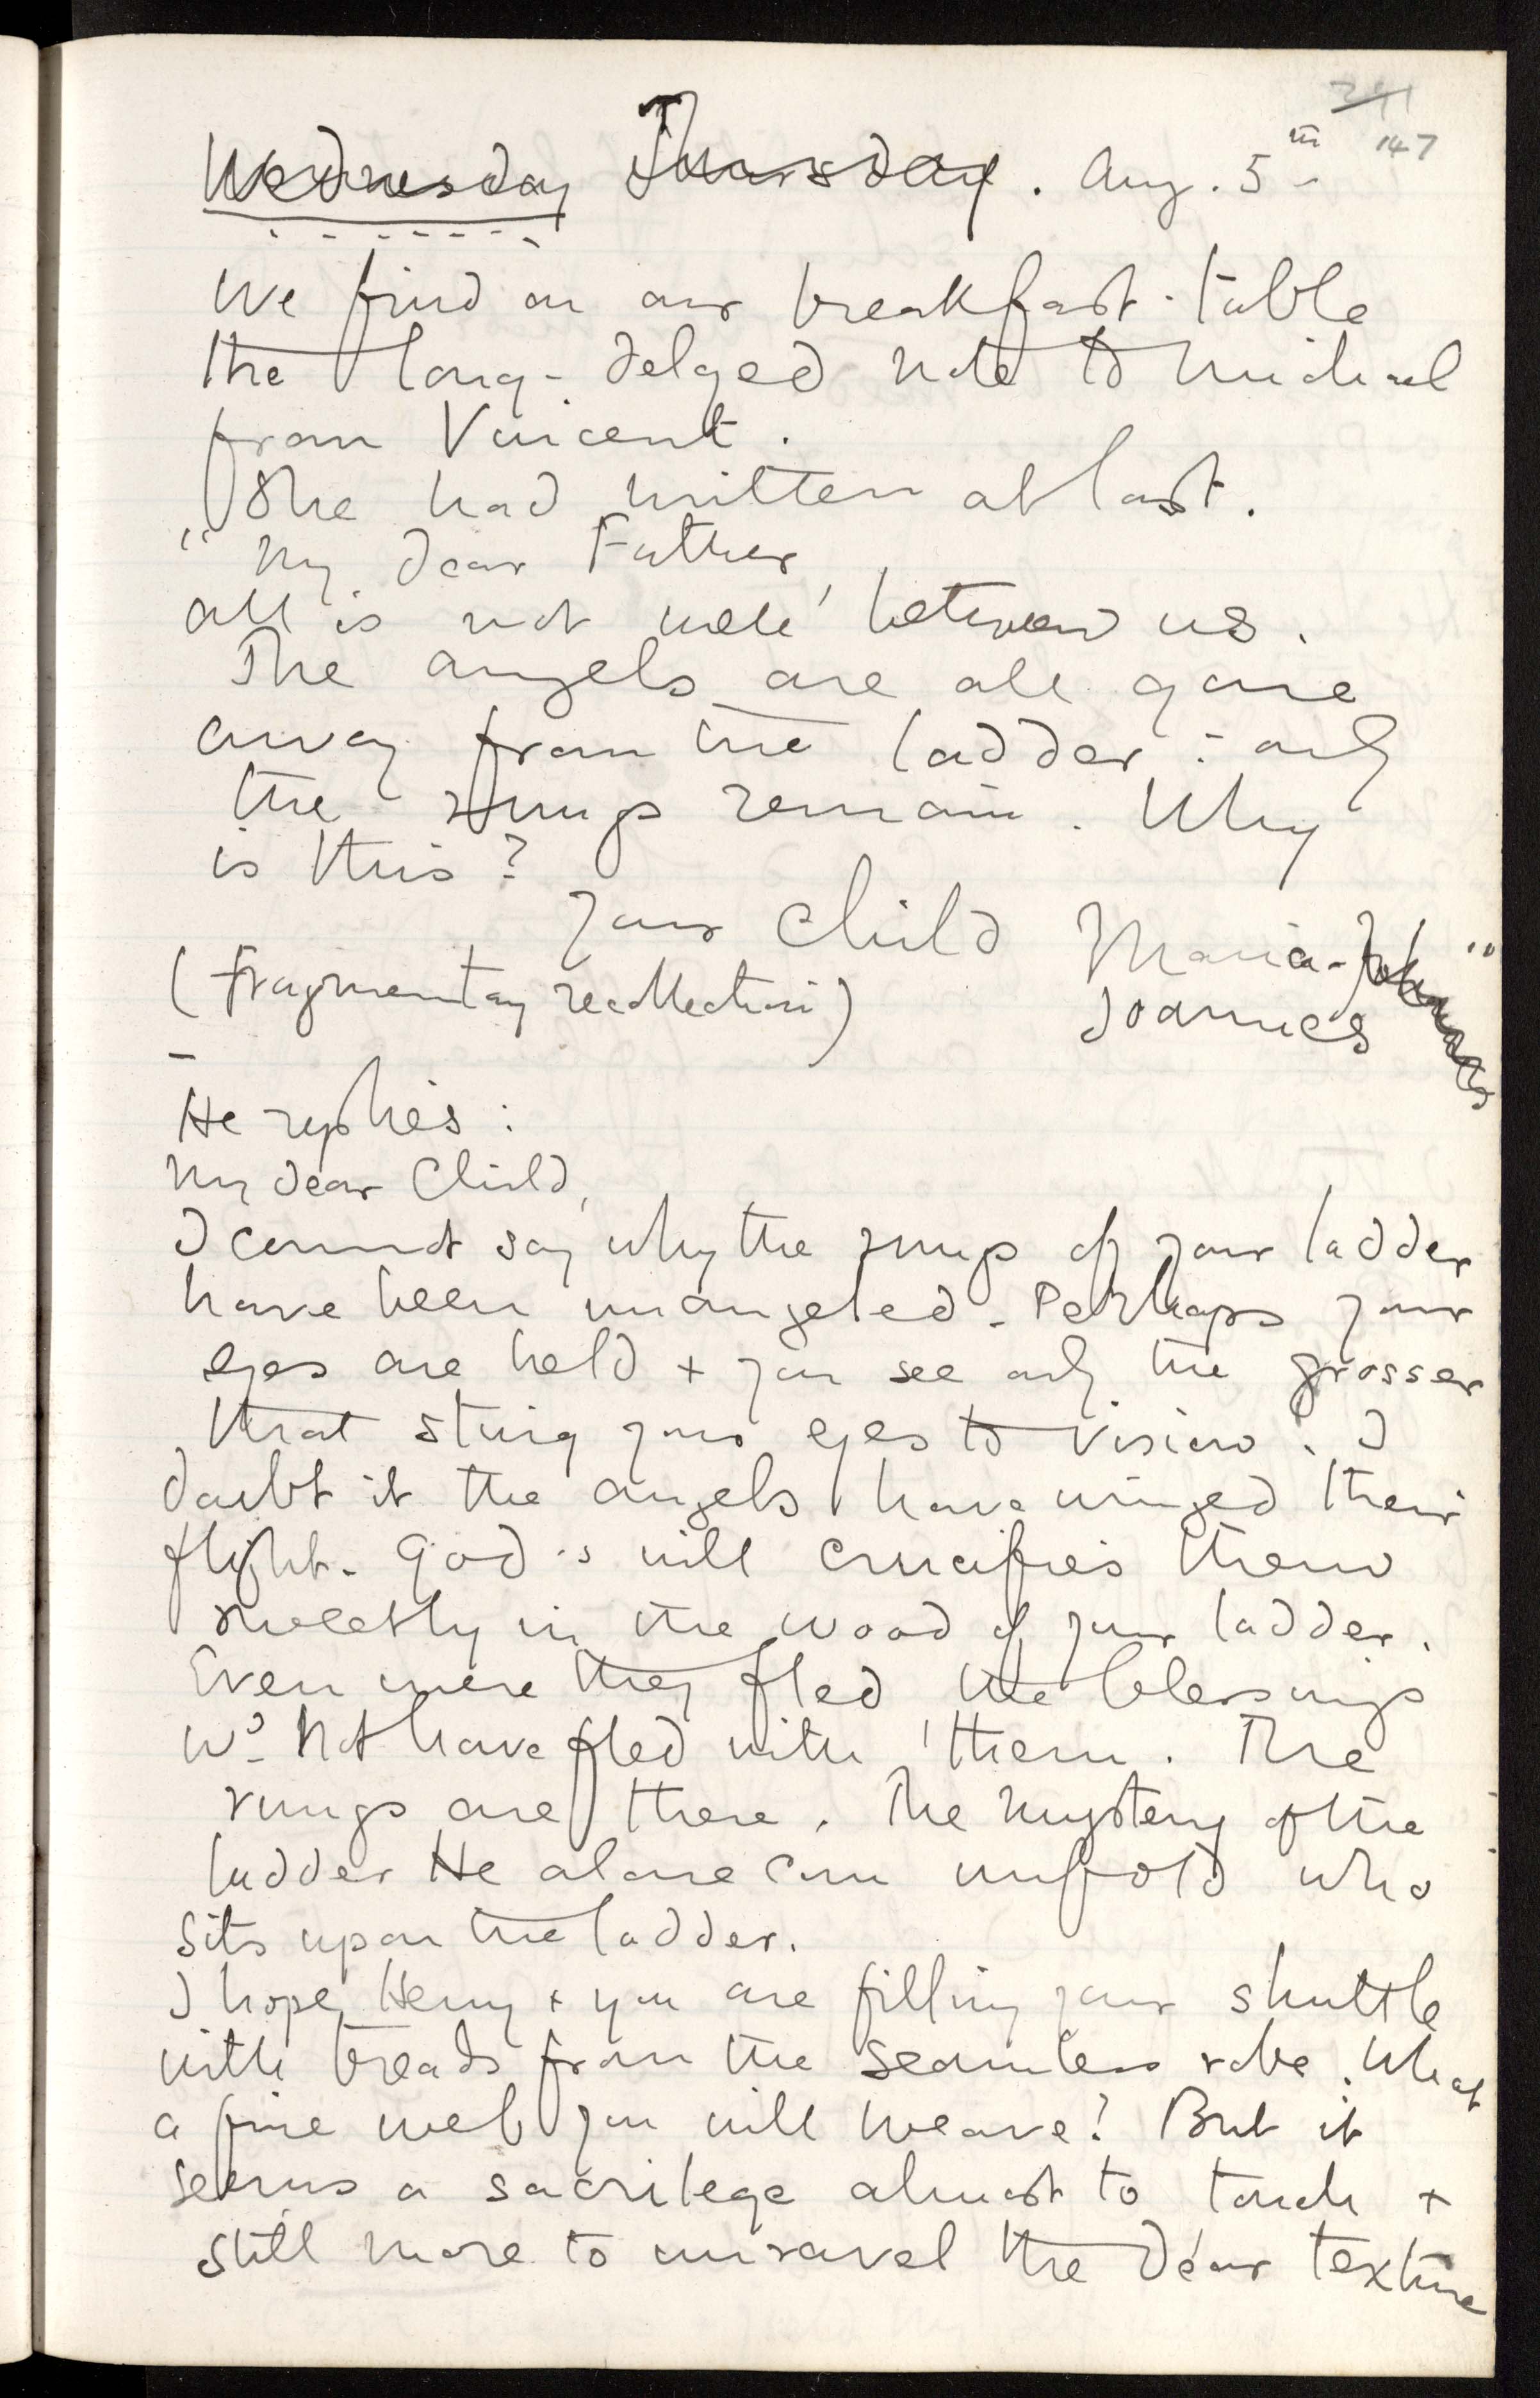 241
147
Wednesday Thursday. Aug. 5th
We find on our breakfast-table
the long-delayed note to Michael
from Vincent.
She had written at last.
"My dear Father,
All is not well between us.
The angels are all gone
away from the ladder: only
the rungs remain. Why
is this?
Your Child Maria-Johannes"
Joannes
(Fragmentary recollection)
He replies:
My dear Child,
I cannot say why the rungs of your ladder
have been unangeled. Perhaps your
eyes are held + you see only the grosser
that sting your eyes to vision. I
doubt it the angels have winged their
flight. God's will crucifies them
sweetly in the wood of your ladder.
Even were they fled the blessings
wd. not have fled with them. The
rungs are there. The mystery of the
ladder He alone can unfold who
sits upon the ladder.
I hope Henry + you are filling your shuttle
with treads from the seamless robe. What
a fine web you will weave! But it
seems a sacrilege almost to touch +
still more to unravel the dear texture